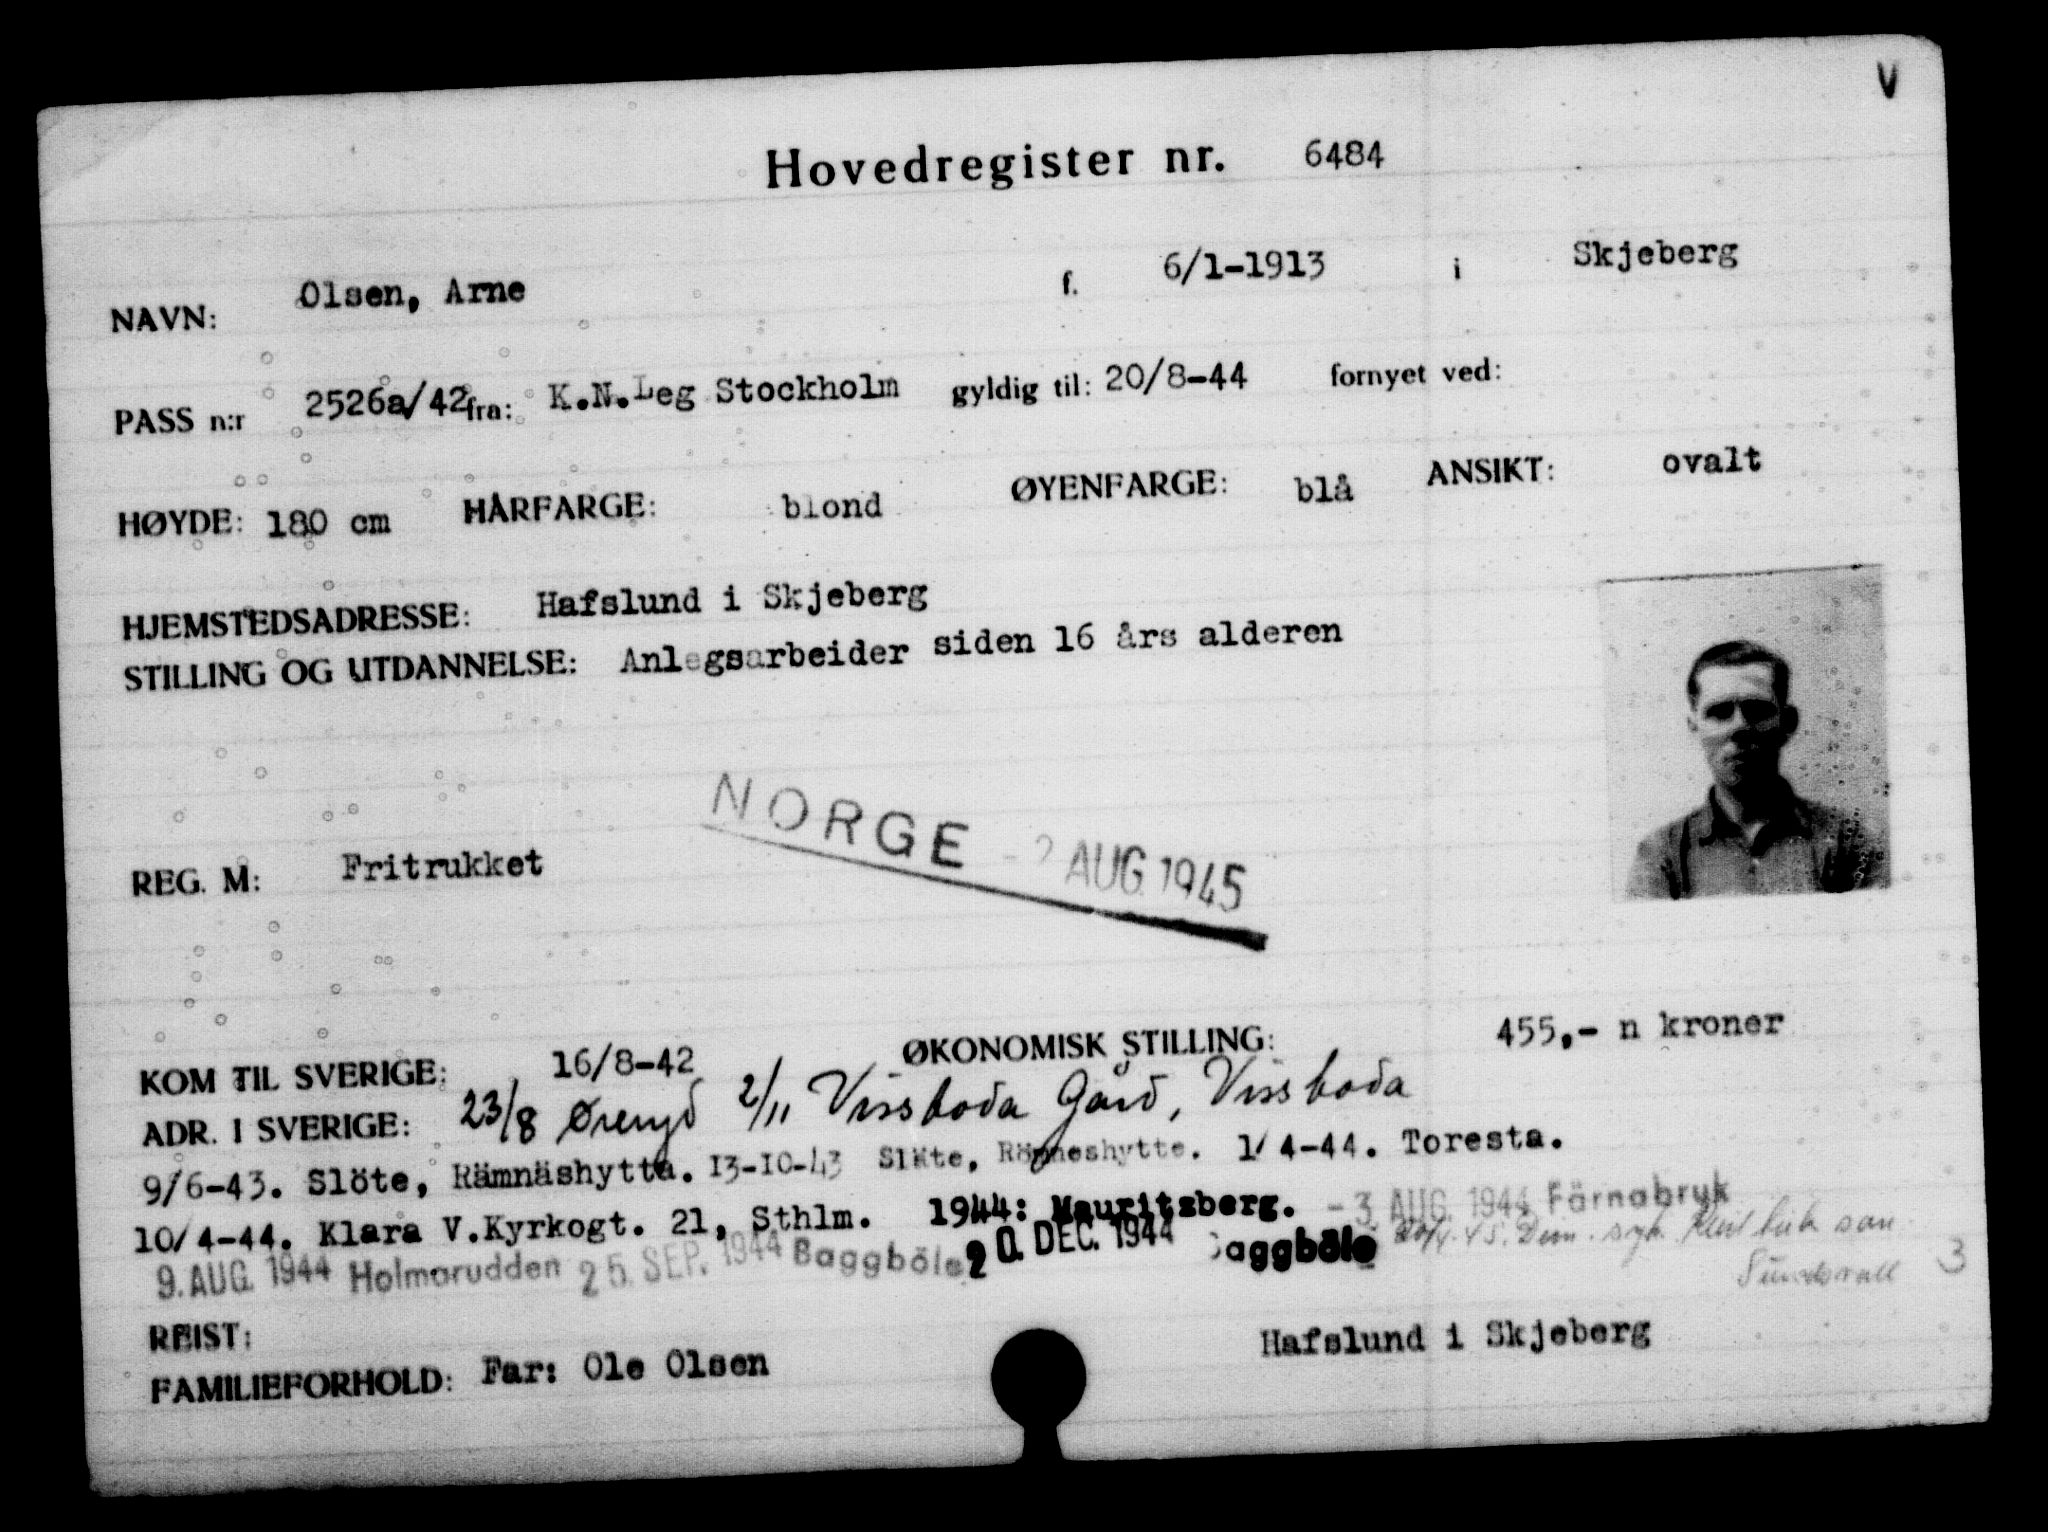 V
Hovedregister nr. 6484
NAVN: Olsen, Arne f. 6/1-1913 i Skjeberg
PASS n:r 2526a/42 fra: K.N.Leg Stockholm gyldig til: 20/8-44 fornyet ved:
HØYDE: 180 cm HÅRFARGE: blond ØYENFARGE: blå ANSIKT: ovalt
HJEMSTEDSADRESSE: Hafslund i Skjeberg
STILLING OG UTDANNELSE: Anlegsarbeider siden 16 års alderen
NORGE - 2 AUG. 1945
REG. M: Fritrukket
KOM TIL SVERIGE: 16/8-42 ØKONOMISK STILLING: 455,- n kroner
ADR. I SVERIGE: 23/8 Øreryd 2/11 Vissboda Gård, Vissboda
9/6-43. Slöte, Rämnäshytta. 13-10-43 Släte, Rönneshytte. 1/4-44. Toresta.
10/4-44. Klara V.Kyrkogt. 21, Sthlm. 1944: Mauritzberg. - 3 AUG. 1944 Färnabryk
9. AUG. 1944 Holmarudden 25. SEP. 1944 Baggböle 20. DEC. 1944 Baggböle
Sundsvall 3
REIST:
FAMILIEFORHOLD: Far: Ole Olsen Hafslund i Skjeberg